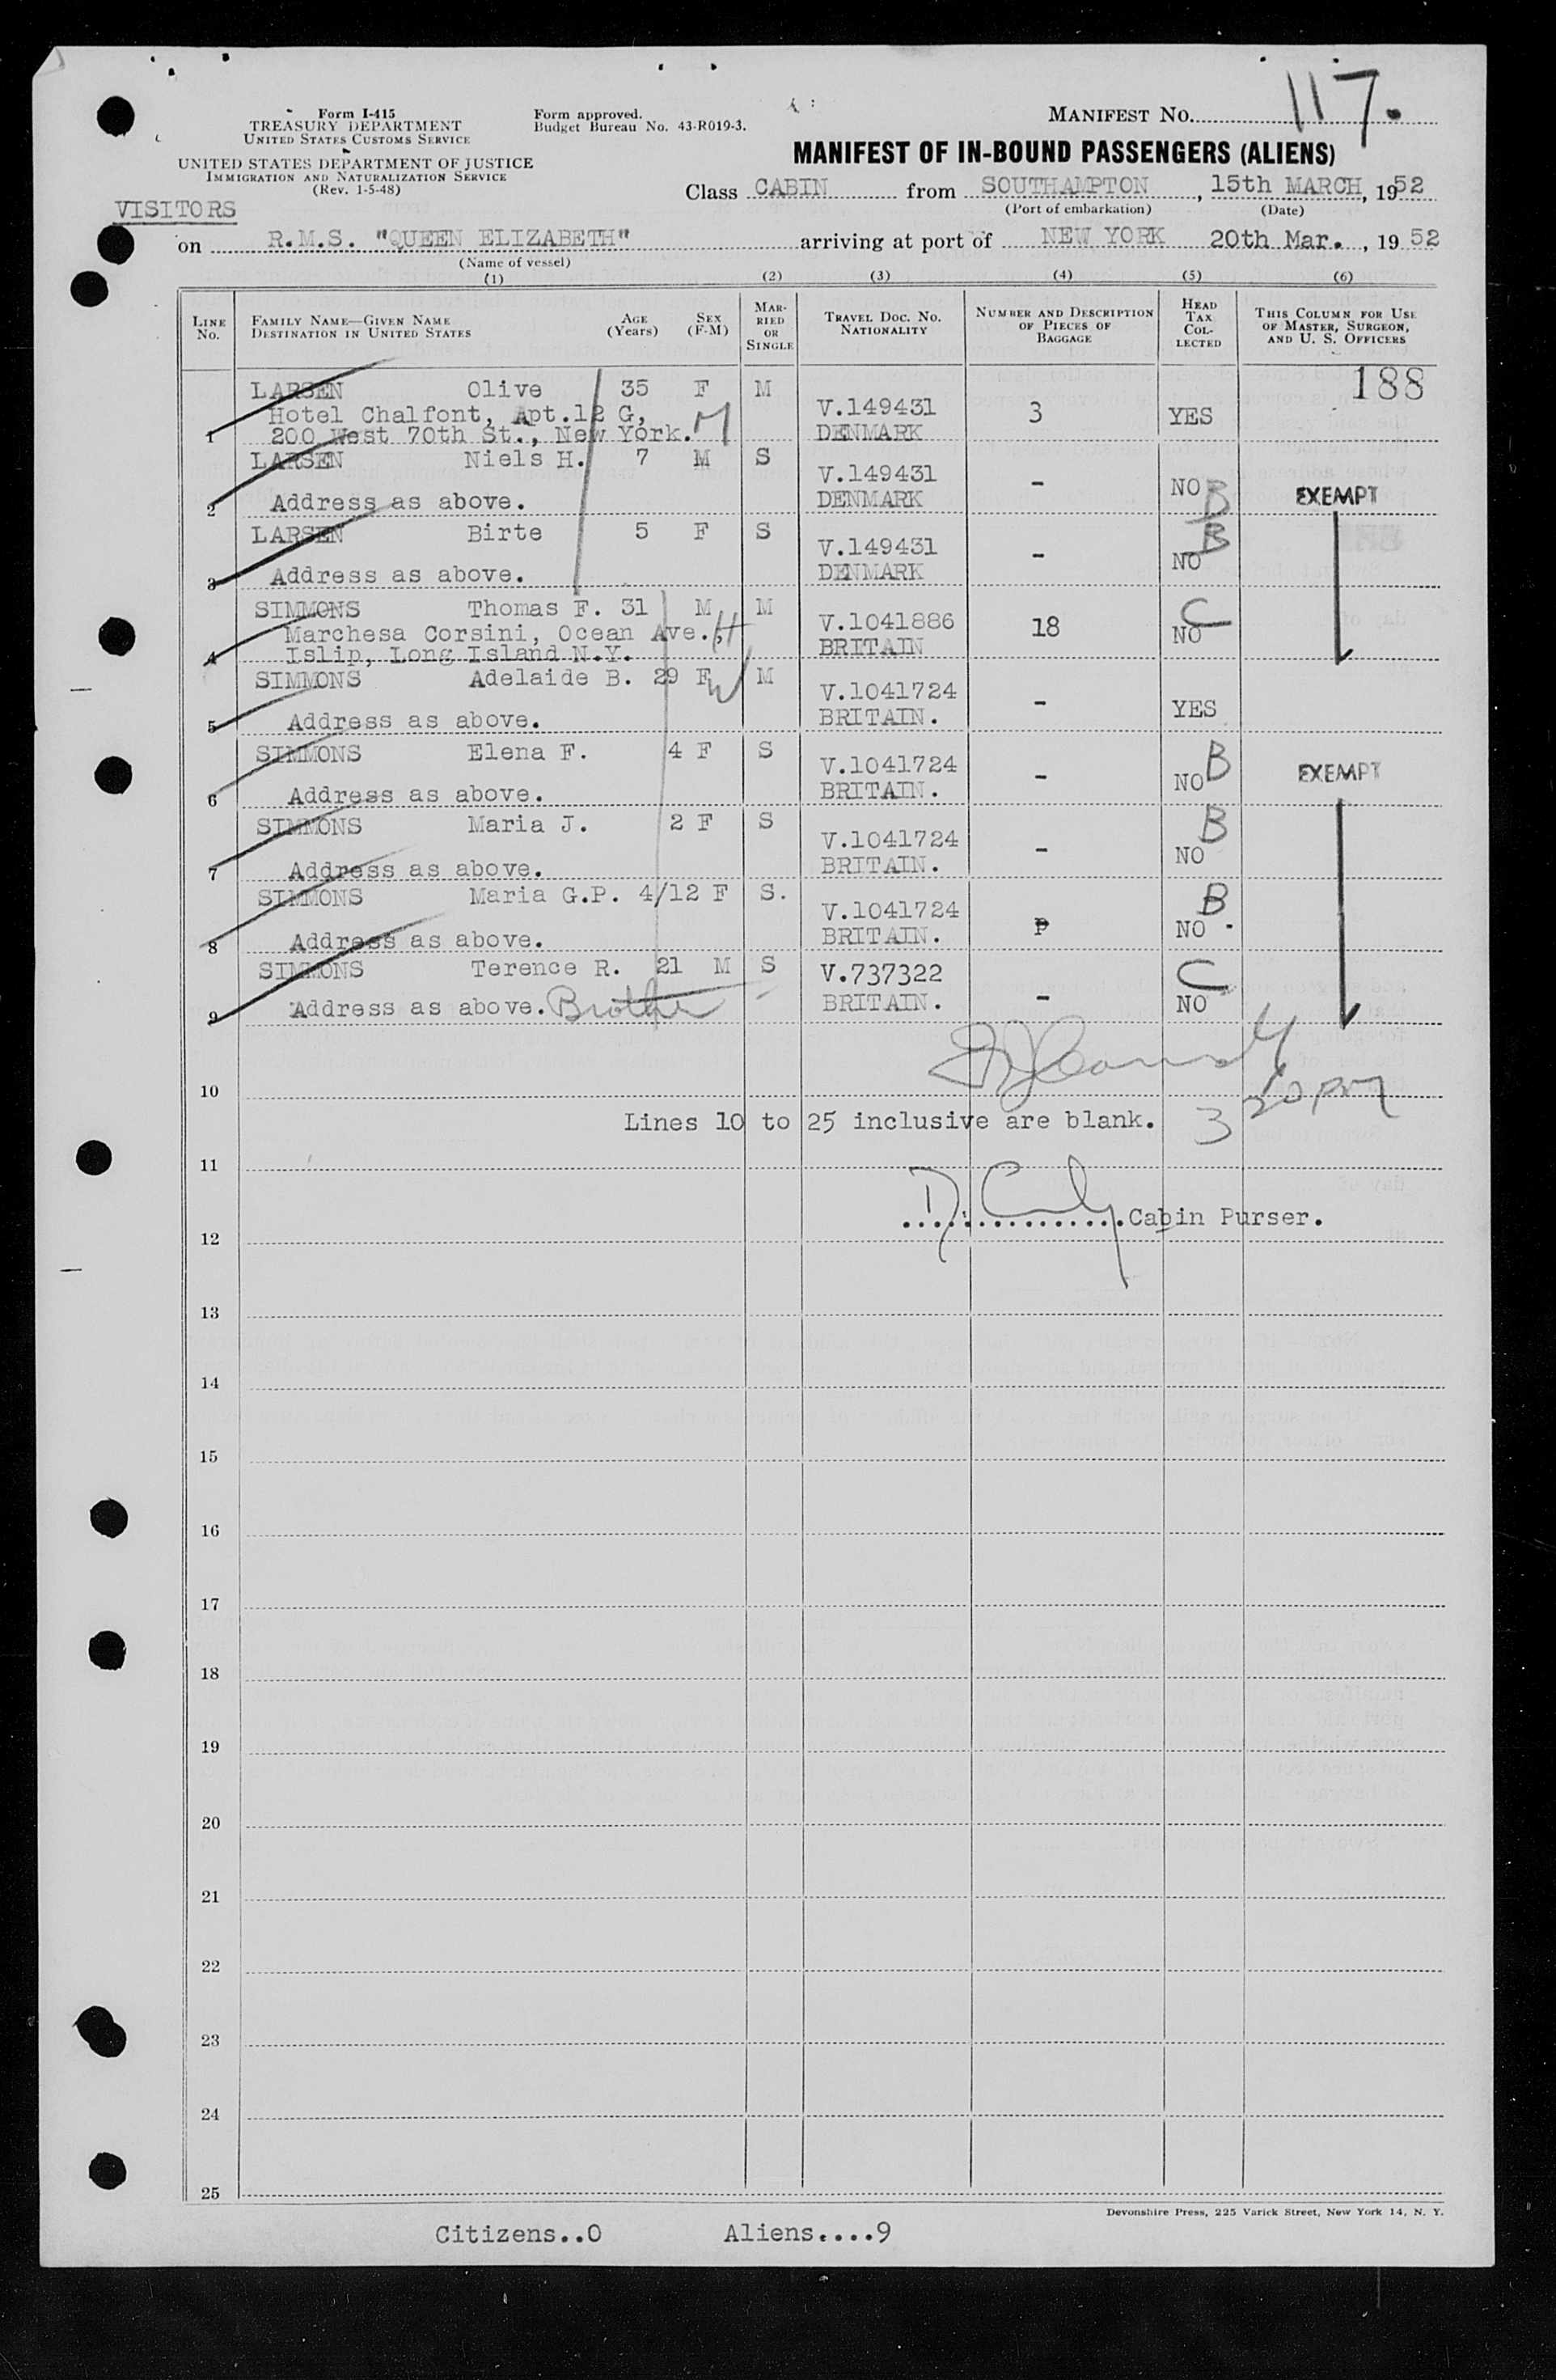 117.
Form I-415
TREASURY DEPARTMENT
UNITED STATES CUSTOMS SERVICE
UNITED STATES DEPARTMENT OF JUSTICE
IMMIGRATION AND NATURALIZATION SERVICE
(Rev. 1-5-48)
Form approved.
Budget Bureau No. 43-R019-3.
MANIFEST No.
MANIFEST OF IN-BOUND PASSENGERS (ALIENS)
Class CABIN from SOUTHAMPTON, 15th MARCH, 1952
(Port of embarkation) (Date)
VISITORS
on R.M.S. "QUEEN ELIZABETH" arriving at port of NEW YORK 20th Mar., 1952
(Name of vessel)
(1) (2) (3) (4) (5) (6)
LINE No. FAMILY NAME—GIVEN NAME DESTINATION IN UNITED STATES AGE (Years) SEX (F-M) MARRIED OR SINGLE TRAVEL DOC. NO. NATIONALITY NUMBER AND DESCRIPTION OF PIECES OF BAGGAGE HEAD TAX COLLECTED THIS COLUMN FOR USE OF MASTER, SURGEON, AND U. S. OFFICERS
188
LARSEN Olive 35 F M
Hotel Chalfont, Apt.12 G, V.149431 3 YES
1 200 West 70th St., New York. M DENMARK
LARSEN Niels H. 7 M S
V.149431 - NO B EXEMPT
2 Address as above. DENMARK
LARSEN Birte 5 F S B
V.149431 - NO
3 Address as above. DENMARK
SIMMONS Thomas F. 31 M M C
Marchesa Corsini, Ocean Ave., H V.1041886 18 NO
4 Islip, Long Island N.Y. BRITAIN
SIMMONS Adelaide B. 29 F W M
V.1041724 - YES
5 Address as above. BRITAIN.
SIMMONS Elena F. 4 F S B
V.1041724 - NO EXEMPT
6 Address as above. BRITAIN.
SIMMONS Maria J. 2 F S B
V.1041724 - NO
7 Address as above. BRITAIN.
SIMMONS Maria G.P. 4/12 F S. B
V.1041724 NO
8 Address as above. BRITAIN.
SIMMONS Terence R. 21 M S C
V.737322 - NO
9 Address as above. Brother BRITAIN.
10
3 20 PM
Lines 10 to 25 inclusive are blank.
11
Cabin Purser.
12
13
14
15
16
17
18
19
20
21
22
23
24
25
Devonshire Press, 225 Varick Street, New York 14, N. Y.
Citizens..0 Aliens....9